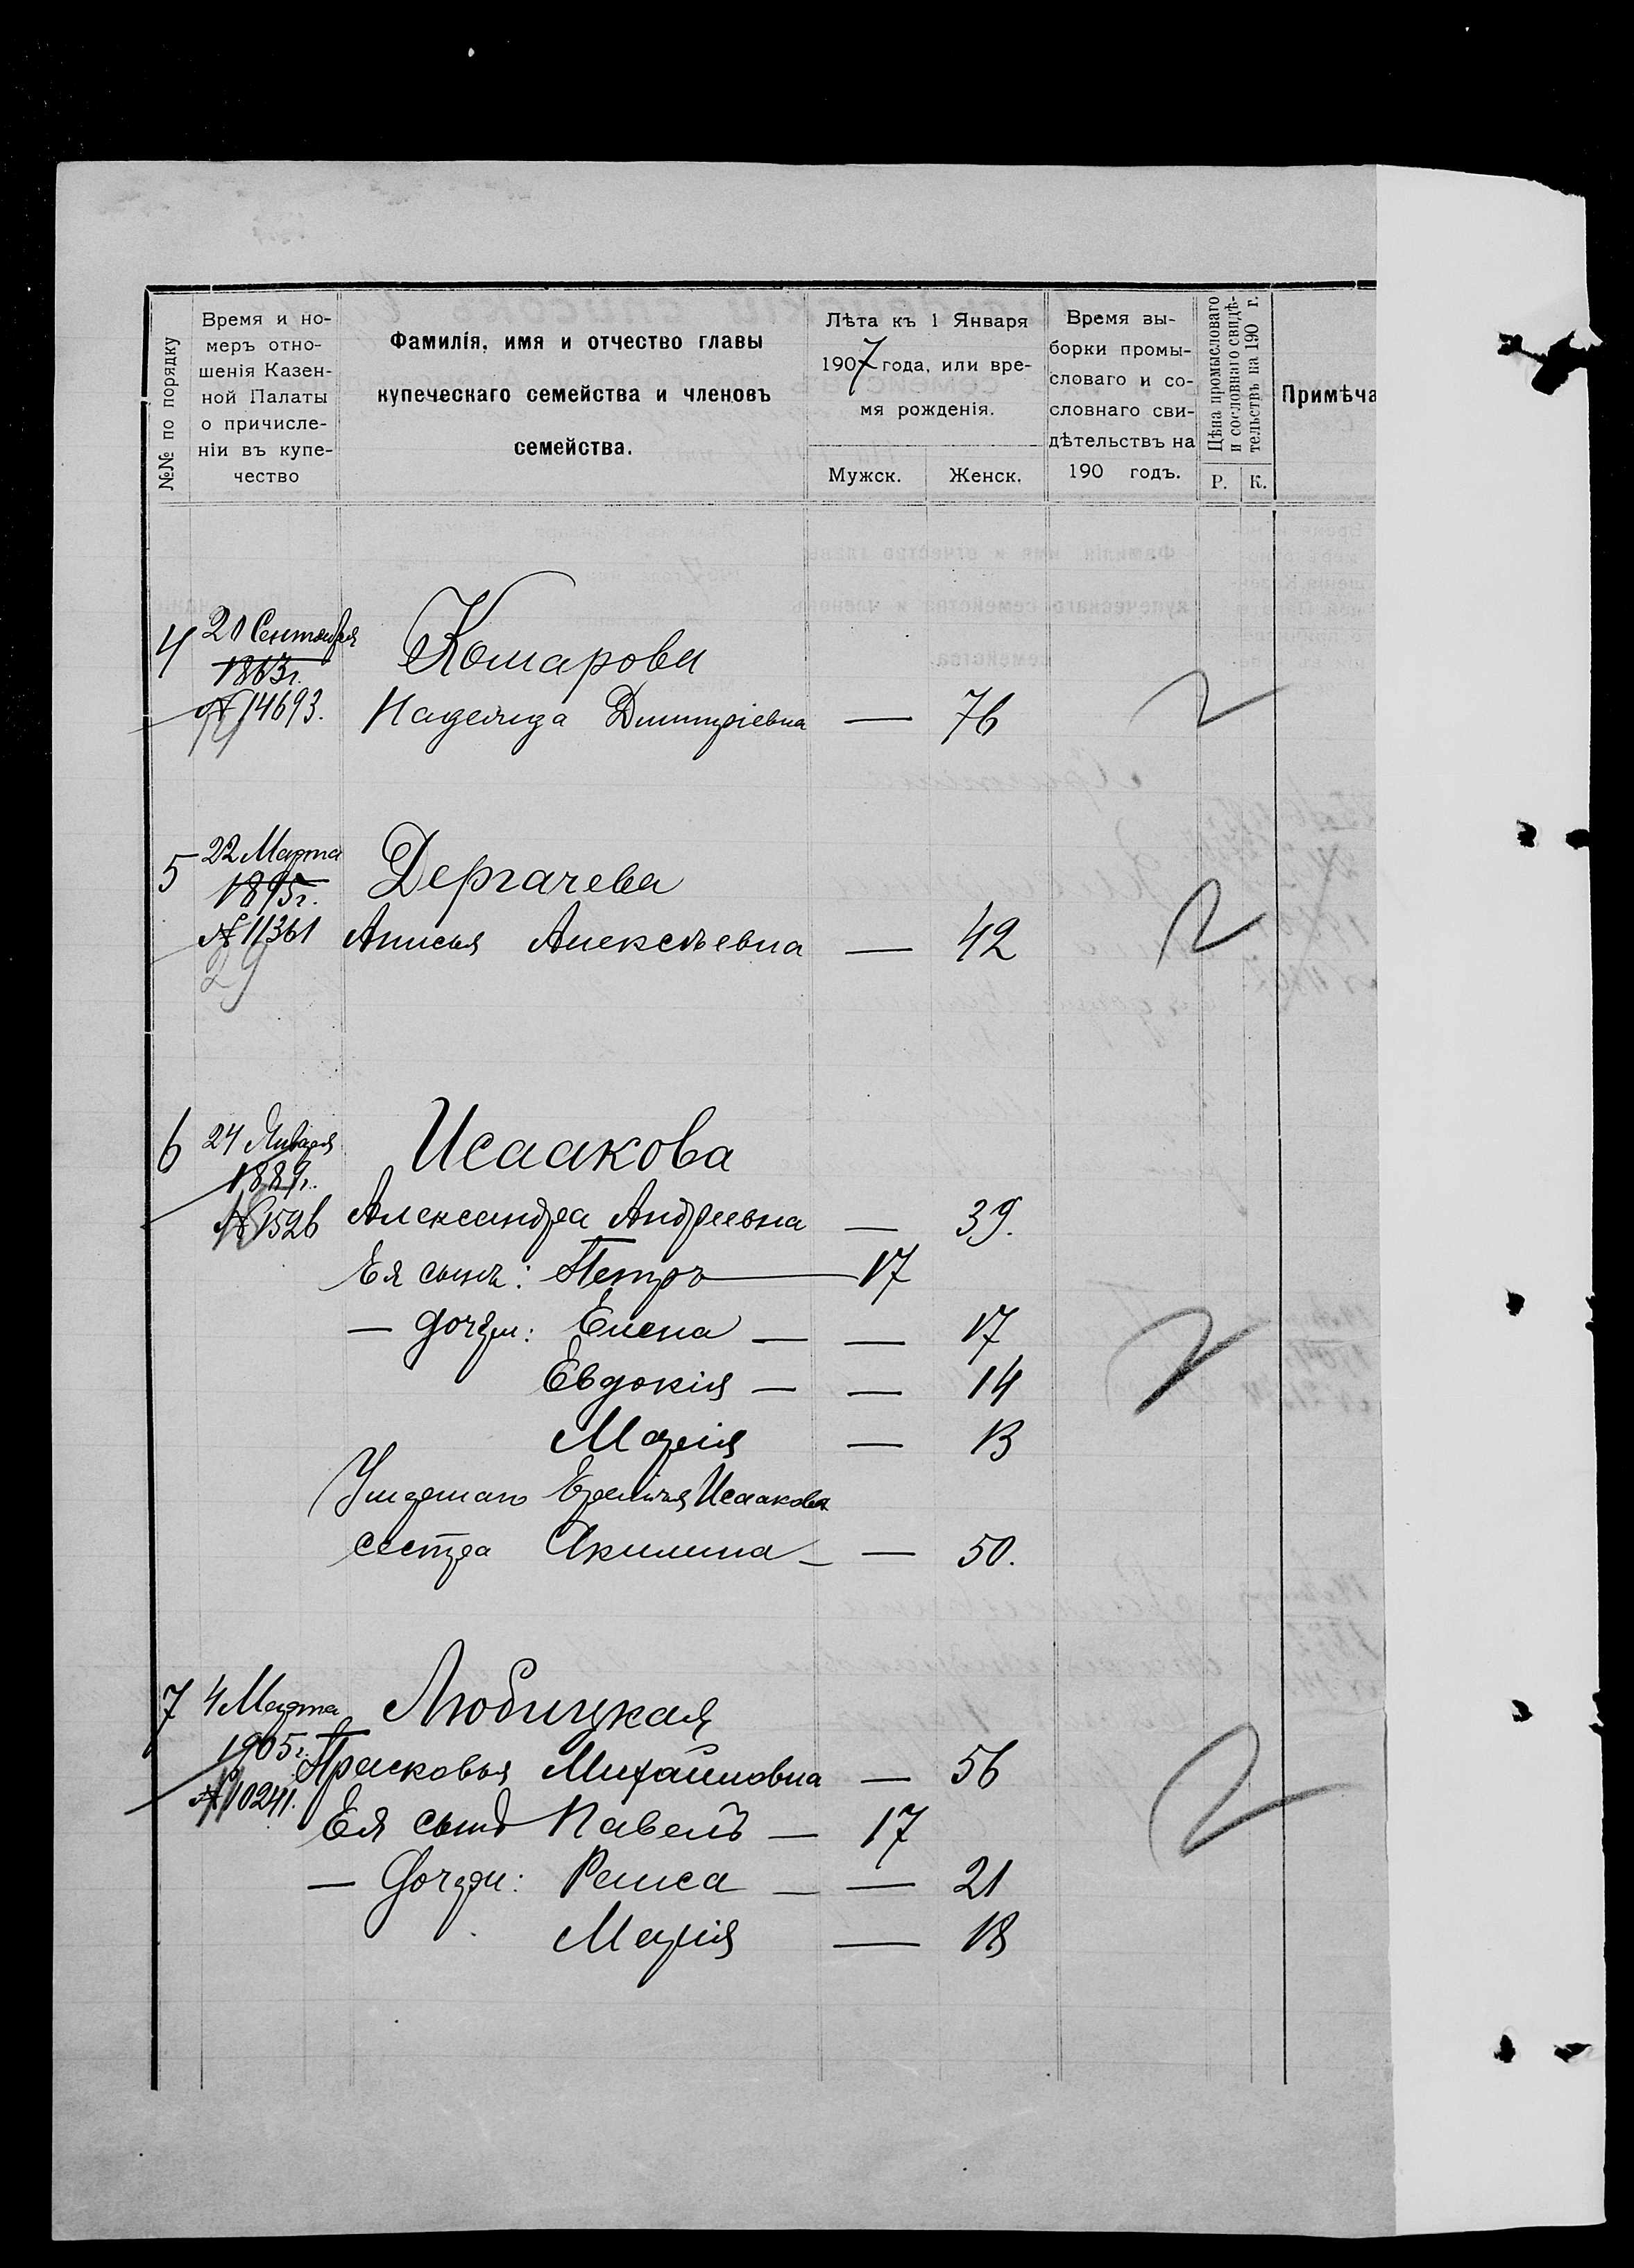 №№ по порядку
Время и но-
меръ отно-
шенія Казен-
ной Палаты
о причисле-
ніи въ купе-
чество
Фамилія, имя и отчество главы
купеческаго семейства и членовъ
семейства.
Лѣта къ 1 Января
1907 года, или вре-
мя рожденія.
Мужск.
Женск.
Время вы-
борки промы-
словаго и со-
словнаго сви-
дѣтельствъ на
190 годъ.
Цѣна промысловаго
и сословнаго свидѣ-
тельствъ на 190 г.
Р. К.
Примѣча
4 20 Сентября Комарова
1863г.
№ 14693. Надежда Димитріевна — 76
5 22 Марта Дергачева
1895г.
№ 11361 Анисья Алексѣевна — 42
6 24 Января Исаакова
1889г.
№ 1526 Александра Андреевна — 39.
Ея сынъ: Петръ — 17
— дочери: Елена — — 17
Евдокія — — 14
Марія — 13
Исаакова
сестра Акилина — — 50.
7 4 Марта Любицкая
1905г. Прасковья Михайловна — 56
№ 10241.
Ея сынъ Павелъ — 17
— дочери: Раиса — — 21
Марія — 18